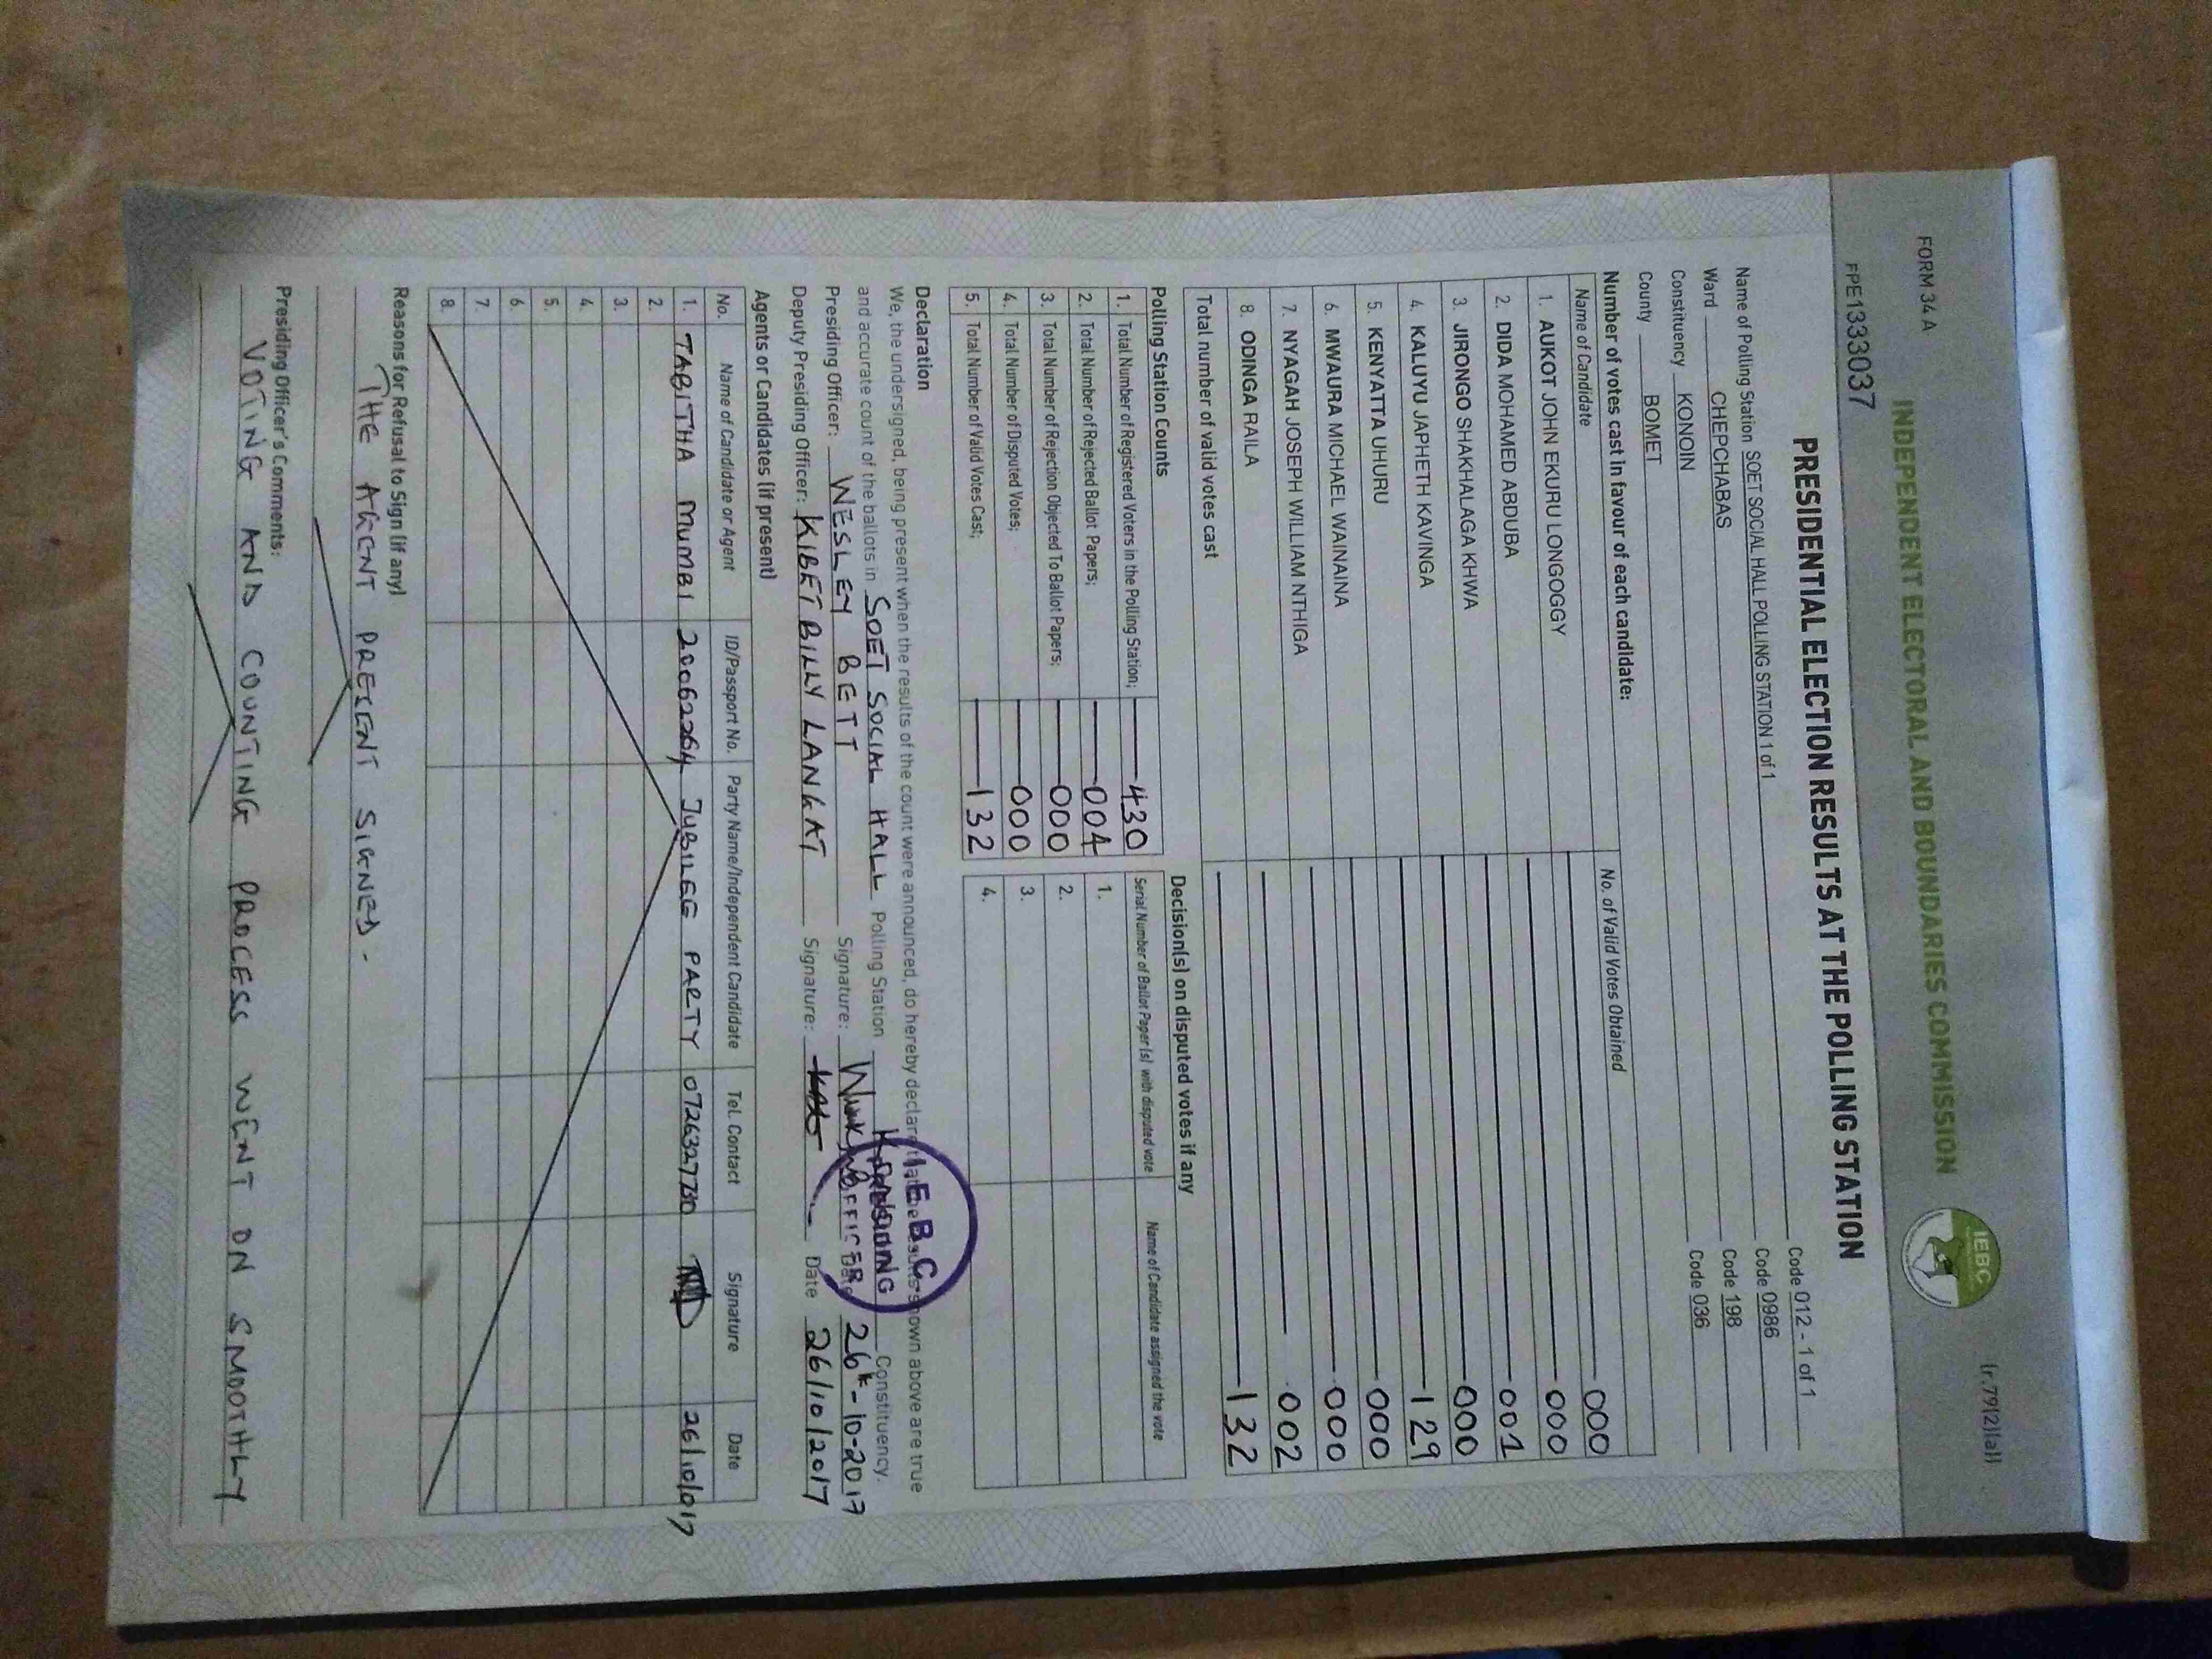 FORM 34 A
(r.79(2)(a))
INDEPENDENT ELECTORAL AND BOUNDARIES COMMISSION
IEBC
PPE1333037
PRESIDENTIAL ELECTION RESULTS AT THE POLLING STATION
Name of Polling Station SOET SOCIAL HALL POLLING STATION 1 of 1 Code 012 - 1 of 1
Ward CHEPCHABAS Code 0986
Constituency KONOIN Code 198
County BOMET Code 036
Number of votes cast in favour of each candidate:
Name of Candidate No. of Valid Votes Obtained
1. AUKOT JOHN EKURU LONGOGGY 000
2. DIDA MOHAMED ABDUBA 000
3. JIRONGO SHAKHALAGA KHWA 001
4. KALUYU JAPHETH KAVINGA 000
5. KENYATTA UHURU 129
6. MWAURA MICHAEL WAINAINA 000
7. NYAGAH JOSEPH WILLIAM NTHIGA 000
8. ODINGA RAILA 002
Total number of valid votes cast 132
Polling Station Counts
1. Total Number of Registered Voters in the Polling Station; 430
2. Total Number of Rejected Ballot Papers; 004
3. Total Number of Rejection Objected To Ballot Papers; 000
4. Total Number of Disputed Votes; 000
5. Total Number of Valid Votes Cast; 132
Decision(s) on disputed votes if any
Serial Number of Ballot Paper(s) with disputed vote Name of Candidate assigned the vote
1.
2.
3.
4.
Declaration
We, the undersigned, being present when the results of the count were announced, do hereby declare that the results shown above are true
and accurate count of the ballots in SOET SOCIAL HALL Polling Station Constituency.
Presiding Officer: WESLEY BETT Signature: Date 26th-10-2017
Deputy Presiding Officer: KIBET BILLY LANGAT Signature: Date 26/10/2017
IEBC
PRESIDING
OFFICER
Agents or Candidates (if present)
No. Name of Candidate or Agent ID/Passport No. Party Name/Independent Candidate Tel. Contact Signature Date
1. TABITHA MUMBI 20062264 JUBILEE PARTY
2.
3.
4.
5.
6.
7.
8.
Reasons for Refusal to Sign (if any)
THE AGENT PRESENT SIGNED.
Presiding Officer's Comments:
VOTING AND COUNTING PROCESS WENT ON SMOOTHLY